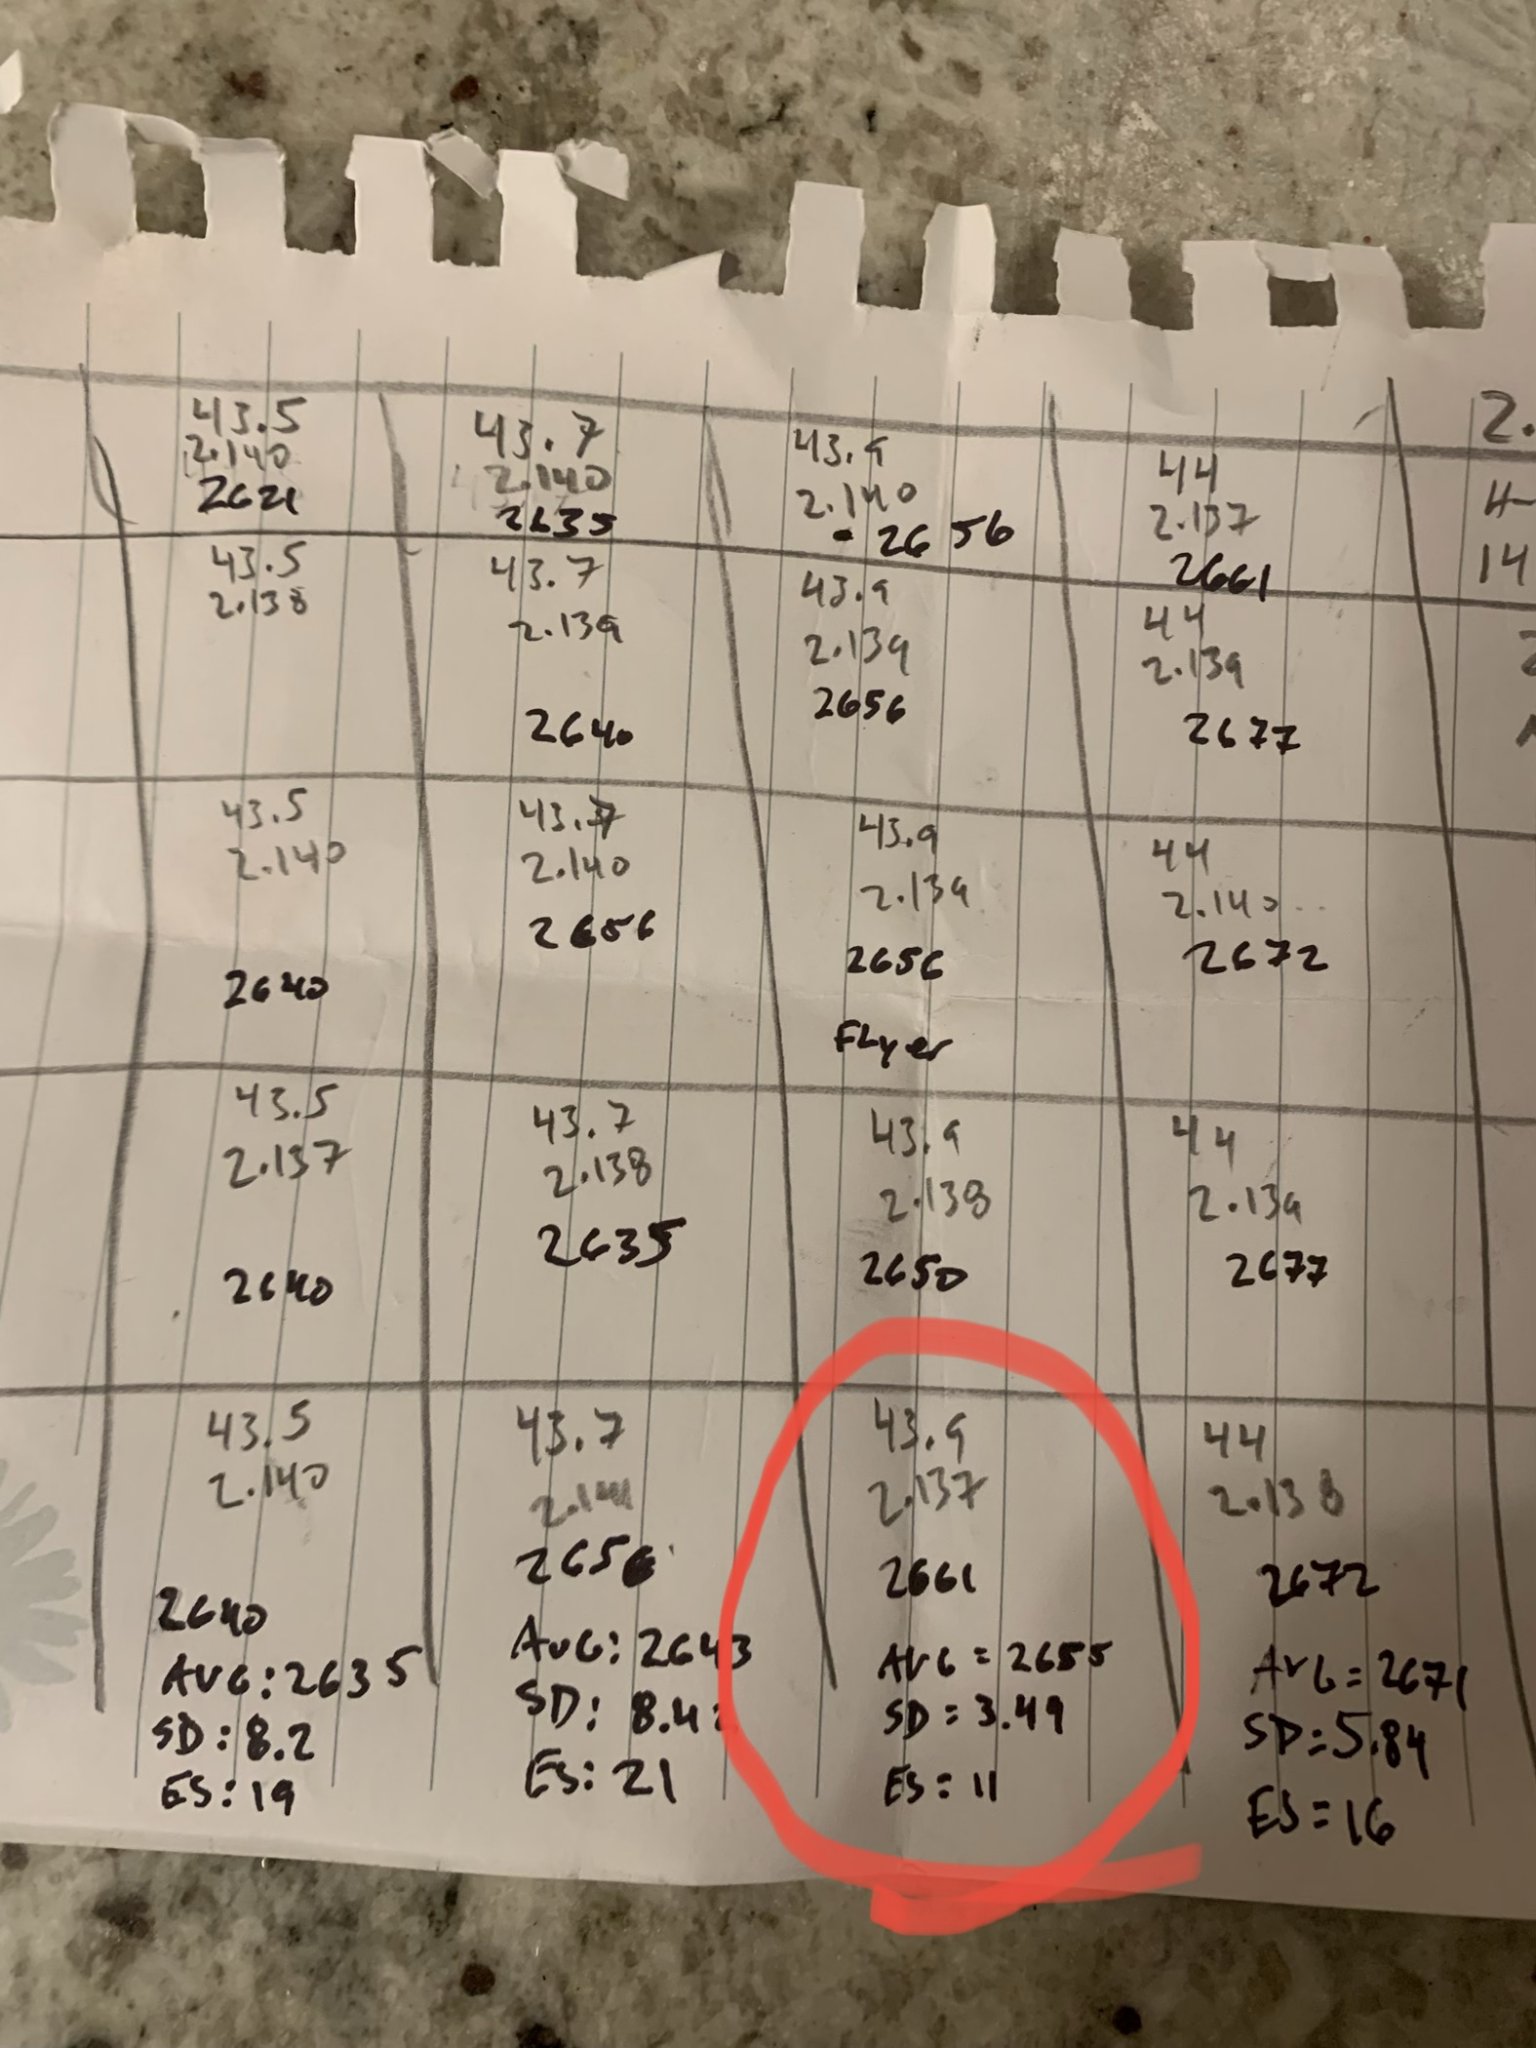 43.5
2.140
2621
43.5
2.138
43.5
2.140
2640
43.5
2.137
2640
43.5
2.140
2640
AVG: 2635
SD: 8.2
ES: 19
43.7
2.140
2635
43.7
2.139
2640
43.7
2.140
2656
43.7
2.138
2635
43.7
2656
AVG: 2643
SD: 8.42
ES: 21
43.9
2.140
- 2656
43.9
2.139
2656
43.9
2.139
2656
Flyer
43.9
2.138
2650
43.9
2.137
2661
AVG = 2655
SD = 3.49
ES = 11
44
2.137
2661
44
2.139
2677
44
2.140
2672
44
2.139
2677
44
2.138
2672
AVG = 2671
SD = 5.84
ES = 16
2.
14